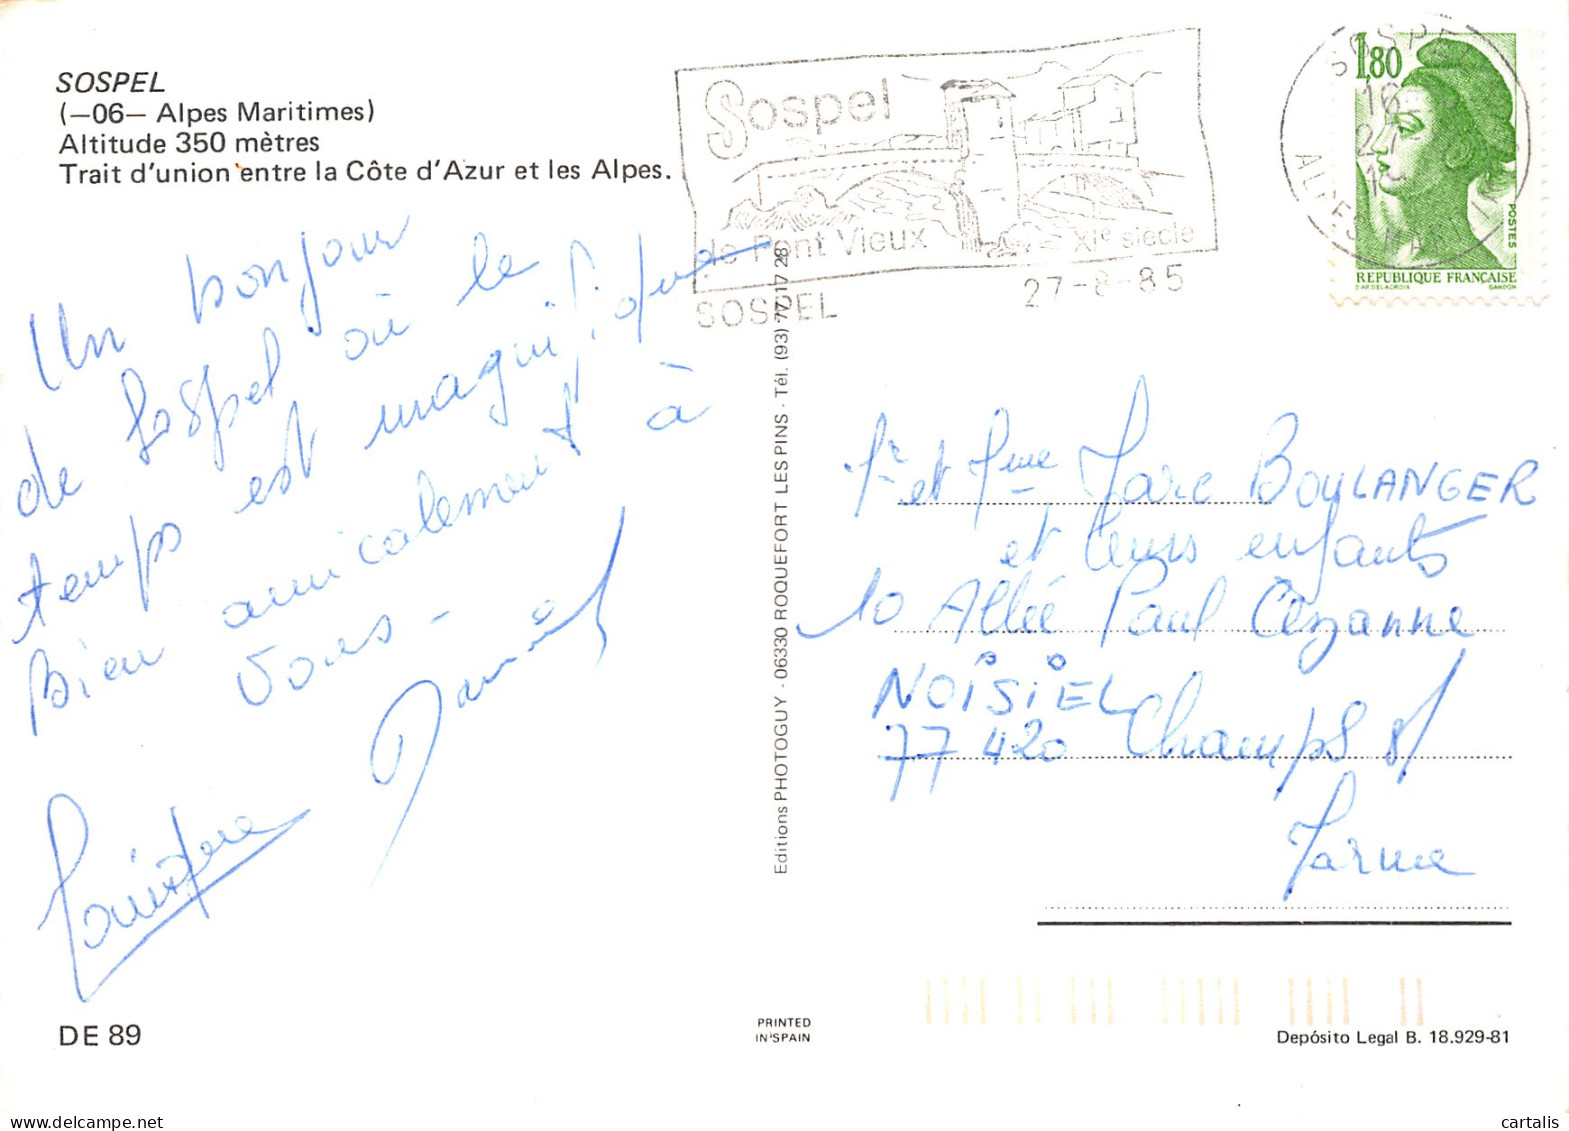 SOSPEL
(—06— Alpes Maritimes)
Altitude 350 mètres
Trait d'union entre la Côte d'Azur et les Alpes.
Sospel
le Pont Vieux XIe siècle
SOSPEL 27-8-85
SOSPEL
16
27
ALPES MAR
1,80
POSTES
REPUBLIQUE FRANÇAISE
D'AP. DELACROIX GANDON
Un bonjour
de Sospel où le
temps est magnifique
Bien amicalement à
vous -
Daniel
Editions PHOTOGUY - 06330 ROQUEFORT LES PINS - Tél. (93) 77 17 28
Mr et Mme Marc BOULANGER
et leurs enfants
10 Allée Paul Cézanne
NOISIEL
77420 Champs s/
Marne
DE 89
PRINTED
IN SPAIN
Depósito Legal B. 18.929-81
cartalis